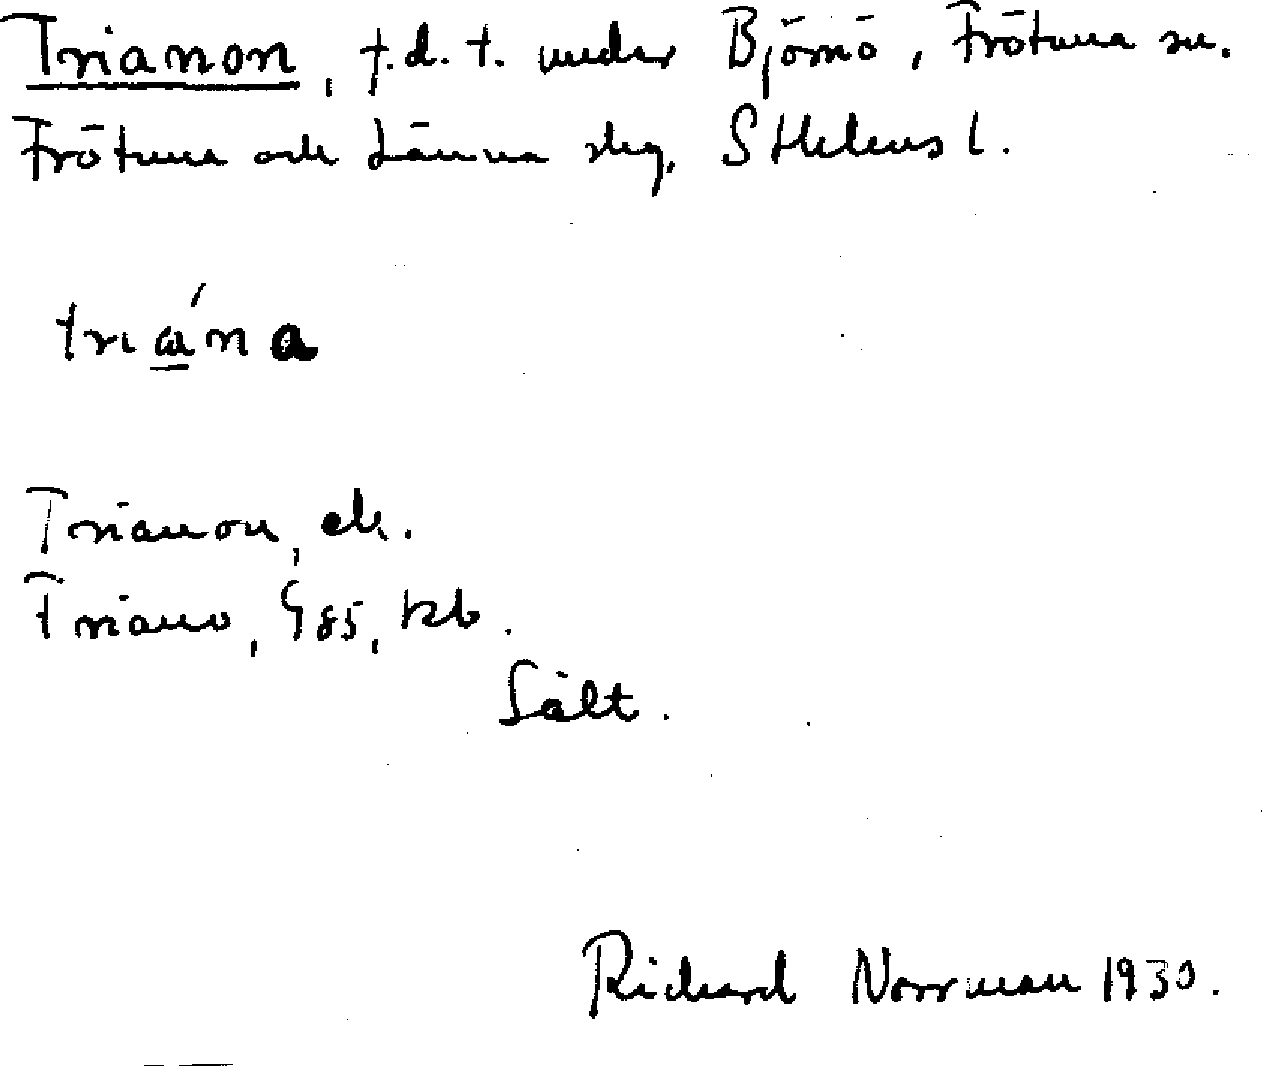 Trianon, f.d. t. under Björnö, Frötuna sn.
Frötuna och Länna skg, Sthlms l.
triána
Trianon, ek.
Triano, G85, kb.
Sålt.
Richard Norrman 1930.